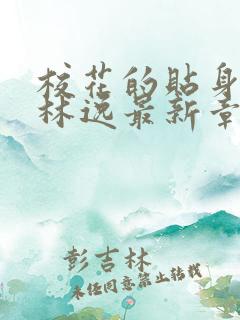 校花的贴身
林逸最新章
彭吉林
未经同意禁止转载